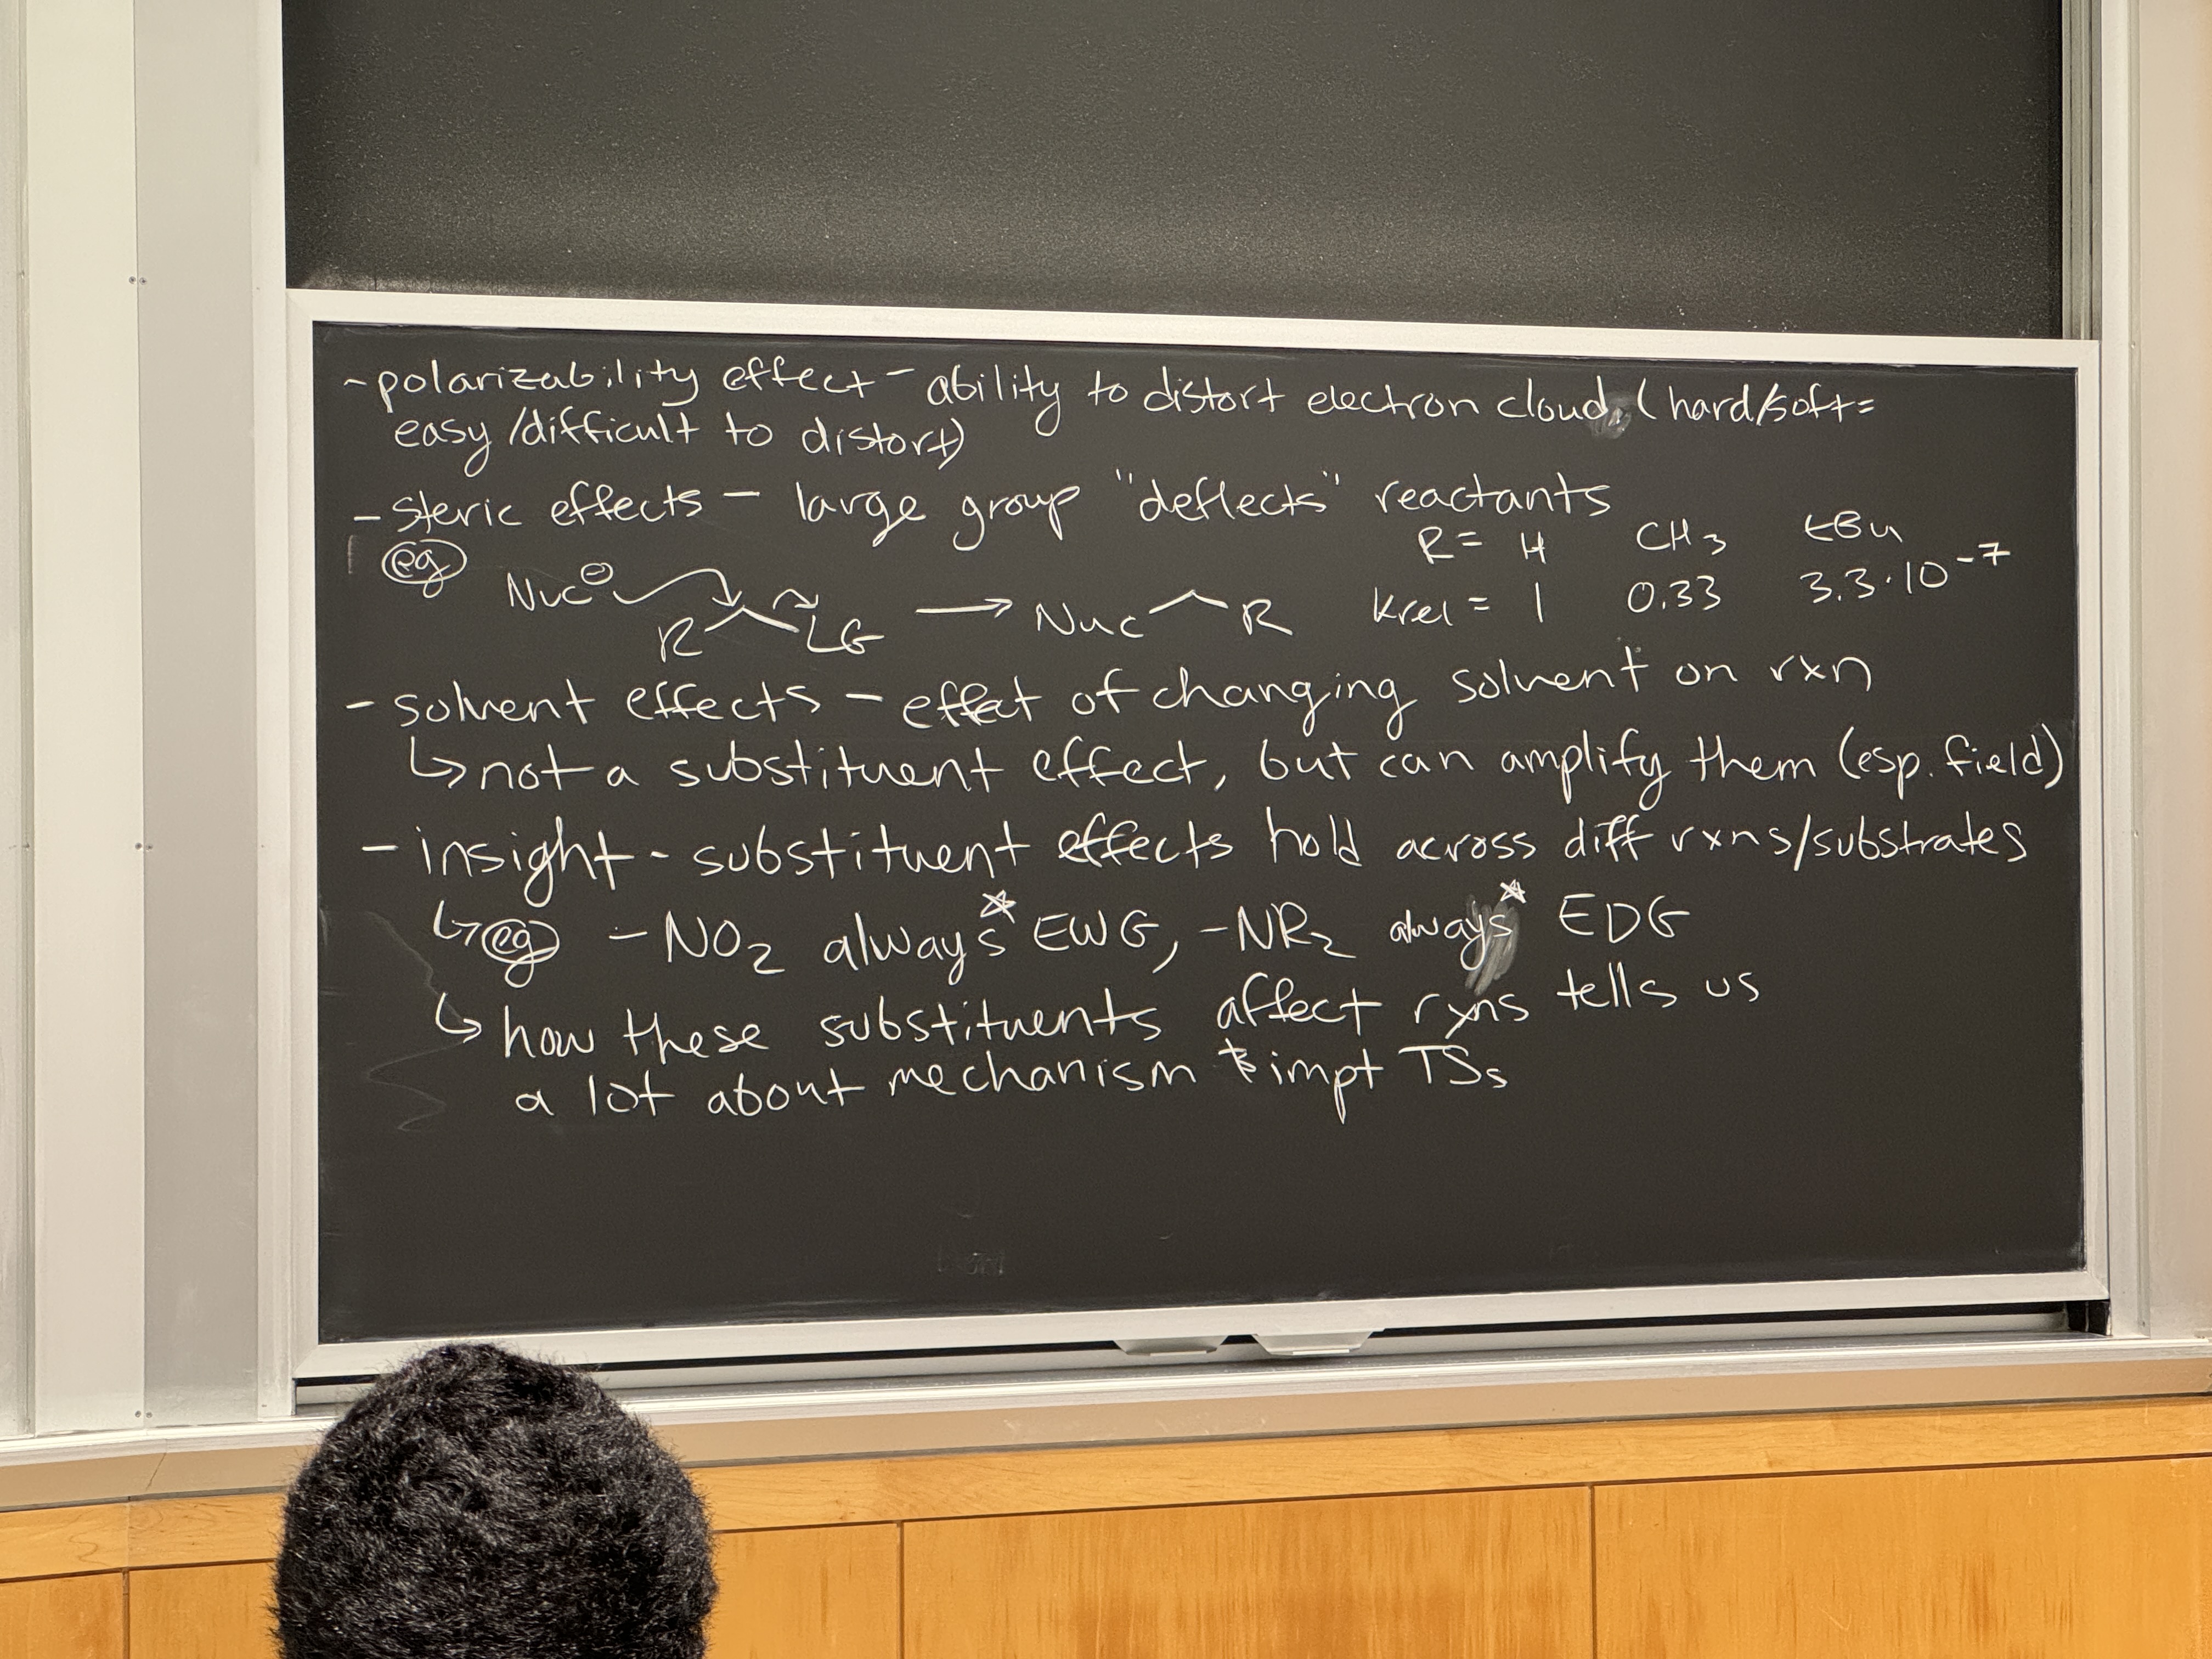 - polarizability effect - ability to distort electron cloud. (hard/soft =
easy/difficult to distort)
- steric effects - large group "deflects" reactants
R = H CH₃ tBu
eg Nuc⊖ R LG → Nuc R krel = 1 0.33 3.3·10⁻⁷
- solvent effects - effect of changing solvent on rxn
↳ not a substituent effect, but can amplify them (esp. field)
- insight - substituent effects hold across diff rxns/substrates
↳ eg -NO₂ always* EWG, -NR₂ always* EDG
↳ how these substituents affect rxns tells us
a lot about mechanism & impt TSs